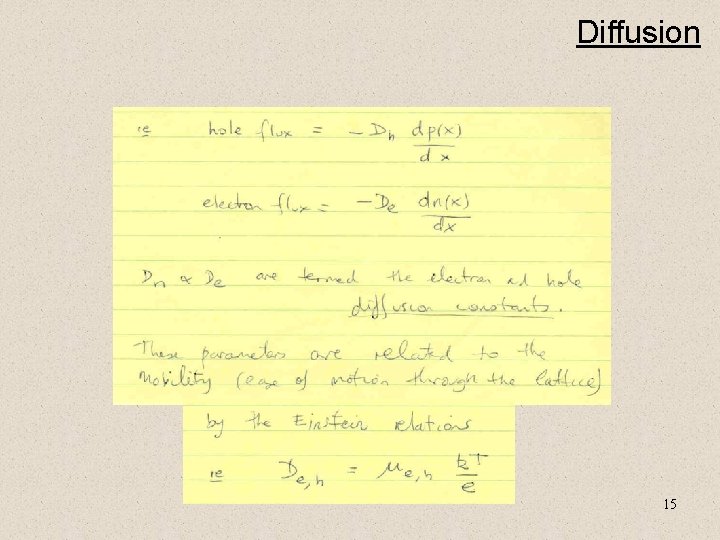 Diffusion
ie hole flux = -D_h dp(x)/dx
electron flux = -D_e dn(x)/dx
D_n & D_e are termed the electron ad hole
diffusion constants.
These parameters are related to the
mobility (ease of motion through the lattice)
by the Einstein relations
ie D_e,h = μ_e,h kT/e
15